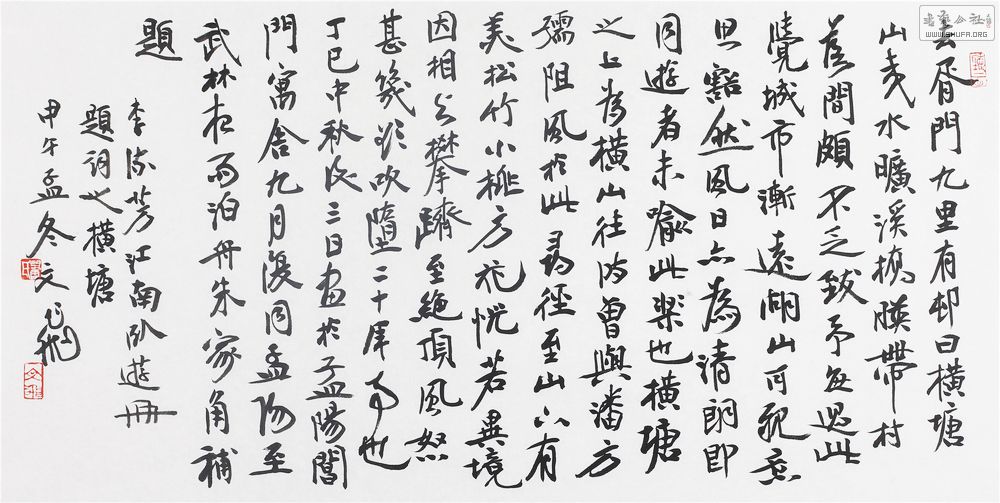 去胥門九里有邨曰橫塘
山夷水曠溪橋映帶村
落間頗不乏致予每過此
覺城市漸遠湖山可親意
思豁然風日亦為清朗即
同遊者未喻此樂也橫塘
之上為橫山往時曾與潘方
孺阻風於此尋徑至山下有
美松竹小桃方花恍若異境
因相與攀躋至絕頂風怒
甚幾欲吹墮二十年事也
丁巳中秋後三日畫於孟陽閶
門寓舍九月復同孟陽至
武林夜雨泊舟朱家角補
題
李流芳江南臥遊冊
題詞之橫塘
甲午孟冬文
書法公社
WWW.SHUFA.ORG